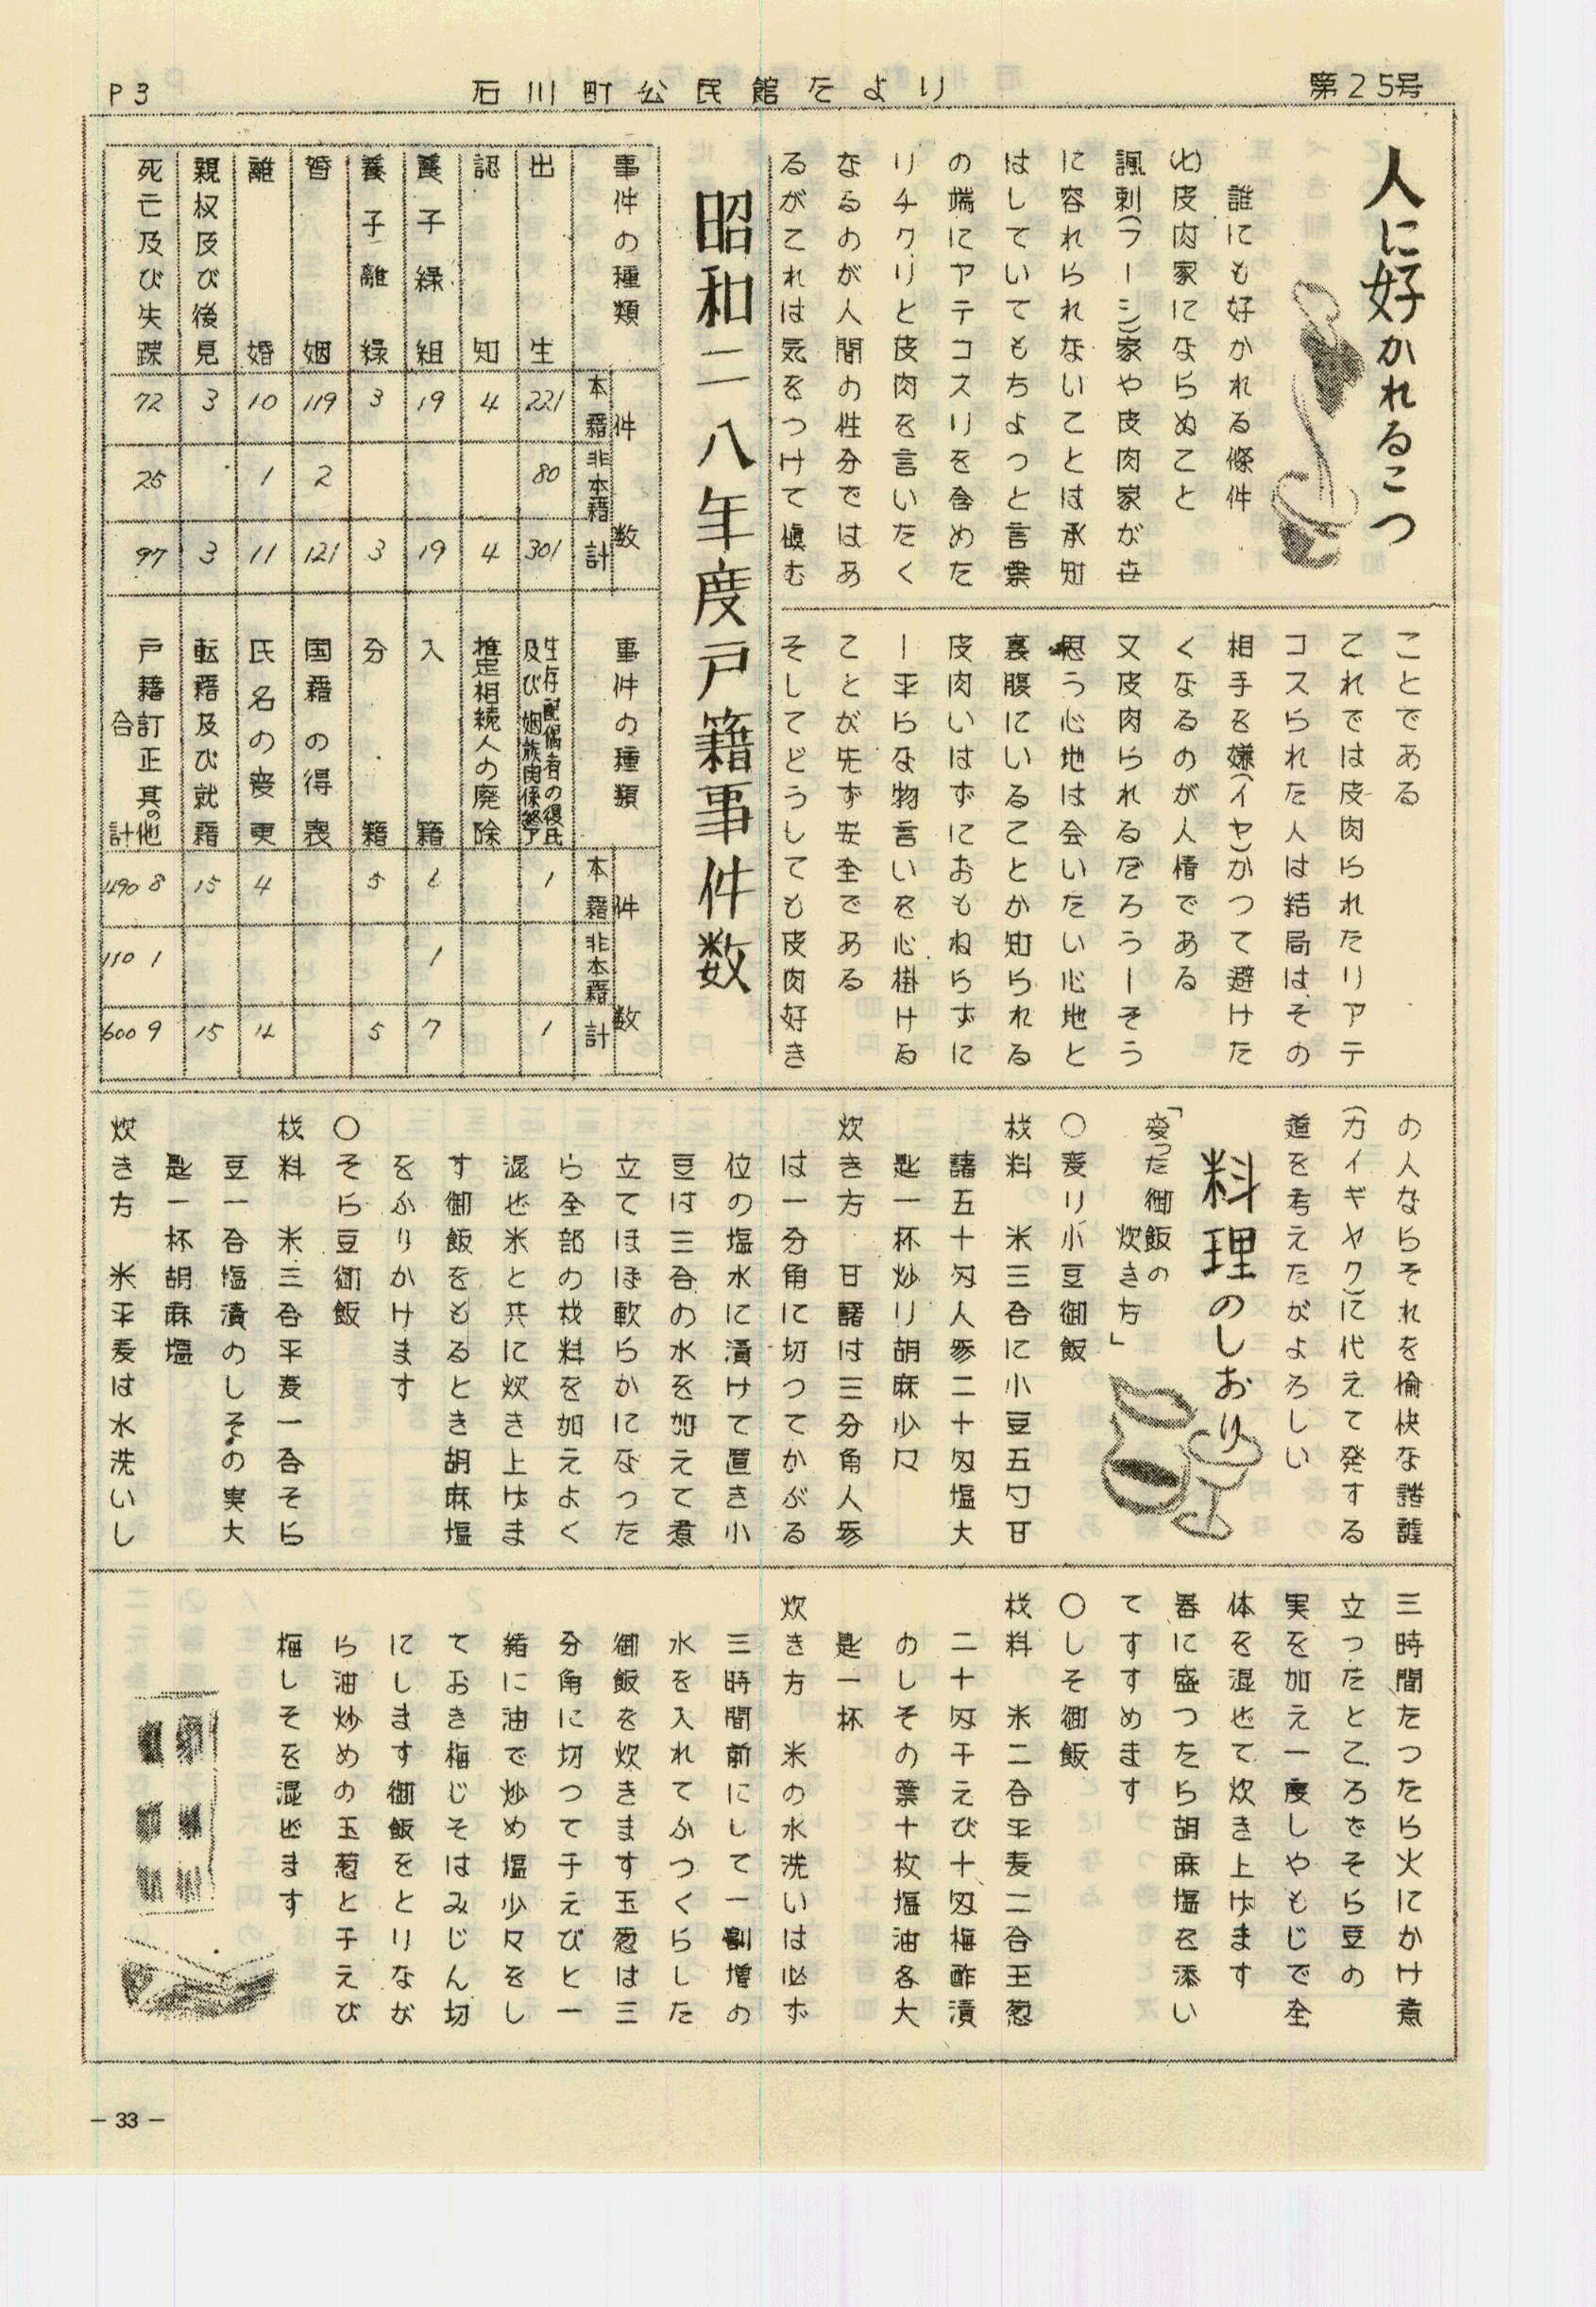 P3
石川町公民館だより
第25号
人に好かれるこつ
誰にも好かれる條件
(七)皮肉家にならぬこと
諷刺(フーシ)家や皮肉家が世
に容れられないことは承知
はしていてもちよっと言葉
の端にアテコスリを含めた
リチクリと皮肉を言いたく
なるのが人間の性分ではあ
るがこれは気をつけて慎む
ことである
これでは皮肉られたりアテ
コスられた人は結局はその
相手を嫌(イヤ)がつて避けた
くなるのが人情である
又皮肉られるだろうーそう
思う心地は会いたい心地と
裏腹にいることが知られる
皮肉いはずにおもねらずに
ー平らな物言いを心掛ける
ことが先ず安全である
そしてどうしても皮肉好き
の人ならそれを愉快な諧謔
(カイギャク)に代えて発する
道を考えたがよろしい
昭和二八年度戸籍事件数
事件の種類 件数 本籍 非本籍 計
出生 221 80 301
認知 4 4
養子緣組 19 19
養子離緣 3 3
婚姻 119 2 121
離婚 10 1 11
親权及び後見 3 3
死亡及び失踪 72 25 97
事件の種類 件数 本籍 非本籍 計
生存配偶者の復氏及び姻族関係終了 1 1
推定相続人の廃除
入籍 6 1 7
分籍 5 5
国籍の得喪
氏名の変更 4 4
転籍及び就籍 15 15
戸籍訂正其の他 8 1 9
合計 490 110 600
料理のしおり
「変った御飯の
炊き方」
○麦り小豆御飯
材料 米三合に小豆五勺甘
藷五十匁人参二十匁塩大
匙一杯炒り胡麻少々
炊き方 甘藷は三分角人参
は一分角に切つてかぶる
位の塩水に漬けて置き小
豆は三合の水を加えて煮
立てほほ軟らかになった
ら全部の材料を加えよく
混ぜ米と共に炊き上げま
す御飯をもるとき胡麻塩
をふりかけます
○そら豆御飯
材料 米三合平麦一合そら
豆一合塩漬のしその実大
匙一杯胡麻塩
炊き方 米平麦は水洗いし
三時間たつたら火にかけ煮
立つたところでそら豆の
実を加え一度しやもじで全
体を混ぜて炊き上げます
器に盛つたら胡麻塩を添い
てすすめます
○しそ御飯
材料 米二合平麦二合玉葱
二十匁干えび十匁梅酢漬
のしその葉十枚塩油各大
匙一杯
炊き方 米の水洗いは必ず
三時間前にして一割増の
水を入れてふつくらした
御飯を炊きます玉葱は三
分角に切つて干えびと一
緒に油で炒め塩少々をし
ておき梅じそはみじん切
にします御飯をとりなが
ら油炒めの玉葱と干えび
梅しそを混ぜます
— 33 —